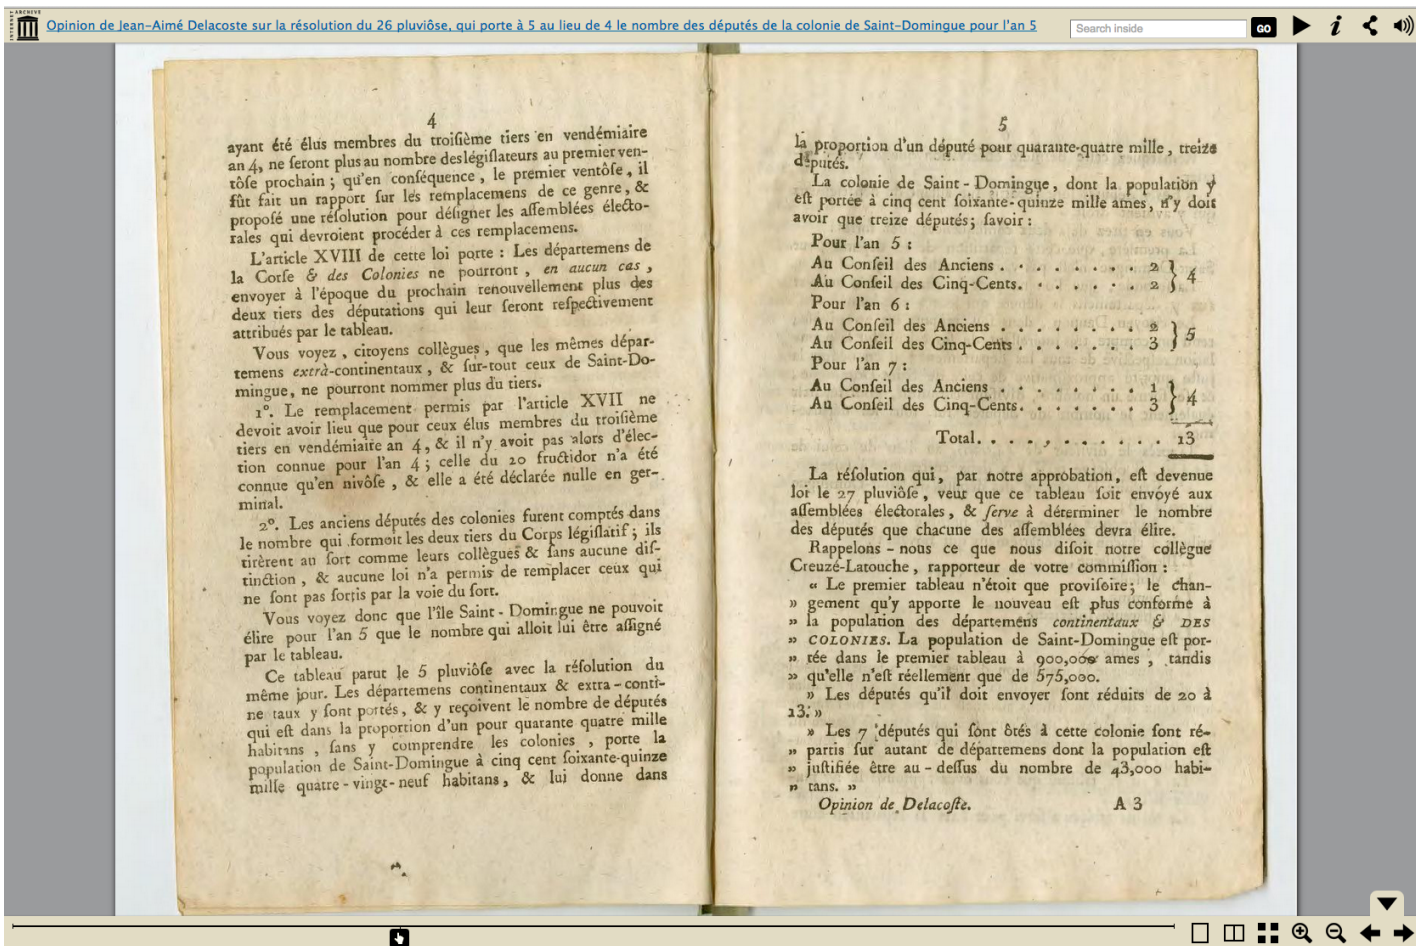 INTERNET ARCHIVE
Opinion de Jean-Aimé Delacoste sur la résolution du 26 pluviôse, qui porte à 5 au lieu de 4 le nombre des députés de la colonie de Saint-Domingue pour l'an 5
Search inside
GO
4
ayant été élus membres du troiſième tiers en vendémiaire
an 4, ne ſeront plus au nombre des légiſlateurs au premier ven-
tôſe prochain ; qu'en conſéquence, le premier ventôſe, il
fût fait un rapport ſur les remplacemens de ce genre, &
propoſé une réſolution pour déſigner les aſſemblées électo-
rales qui devroient procéder à ces remplacemens.
L'article XVIII de cette loi porte : Les départemens de
la Corſe & des Colonies ne pourront, en aucun cas,
envoyer à l'époque du prochain renouvellement plus des
deux tiers des députations qui leur ſeront reſpectivement
attribués par le tableau.
Vous voyez, citoyens collègues, que les mêmes dépar-
temens extrà-continentaux, & ſur-tout ceux de Saint-Do-
mingue, ne pourront nommer plus du tiers.
1°. Le remplacement permis par l'article XVII ne
devoit avoir lieu que pour ceux élus membres du troiſième
tiers en vendémiaire an 4, & il n'y avoit pas alors d'élec-
tion connue pour l'an 4 ; celle du 20 fructidor n'a été
connue qu'en nivôſe, & elle a été déclarée nulle en ger-
minal.
2°. Les anciens députés des colonies furent comptés dans
le nombre qui formoit les deux tiers du Corps légiſlatif ; ils
tirèrent au ſort comme leurs collègues & ſans aucune diſ-
tinction, & aucune loi n'a permis de remplacer ceux qui
ne ſont pas ſortis par la voie du ſort.
Vous voyez donc que l'île Saint-Domingue ne pouvoit
élire pour l'an 5 que le nombre qui alloit lui être aſſigné
par le tableau.
Ce tableau parut le 5 pluviôſe avec la réſolution du
même jour. Les départemens continentaux & extra-conti-
ne taux y ſont portés, & y reçoivent le nombre de députés
qui eſt dans la proportion d'un pour quarante quatre mille
habitans, ſans y comprendre les colonies, porte la
population de Saint-Domingue à cinq cent ſoixante-quinze
mille quatre-vingt-neuf habitans, & lui donne dans
5
la proportion d'un député pour quarante-quatre mille, treize
députés.
La colonie de Saint-Domingue, dont la population y
eſt portée à cinq cent ſoixante-quinze mille ames, n'y doit
avoir que treize députés ; ſavoir :
Pour l'an 5 :
Au Conſeil des Anciens . . . . . . . . 2 } 4
Au Conſeil des Cinq-Cents. . . . . . . 2
Pour l'an 6 :
Au Conſeil des Anciens . . . . . . . . 2 } 5
Au Conſeil des Cinq-Cents . . . . . . . 3
Pour l'an 7 :
Au Conſeil des Anciens . . . . . . . . 1 } 4
Au Conſeil des Cinq-Cents. . . . . . . 3
Total. . . . . . . . . . . . 13
La réſolution qui, par notre approbation, eſt devenue
loi le 27 pluviôſe, veut que ce tableau ſoit envoyé aux
aſſemblées électorales, & ſerve à déterminer le nombre
des députés que chacune des aſſemblées devra élire.
Rappelons-nous ce que nous diſoit notre collègue
Creuzé-Latouche, rapporteur de votre commiſſion :
« Le premier tableau n'étoit que proviſoire ; le chan-
» gement qu'y apporte le nouveau eſt plus conforme à
» la population des départemens continentaux & DES
» COLONIES. La population de Saint-Domingue eſt por-
» tée dans le premier tableau à 900,000 ames, tandis
» qu'elle n'eſt réellement que de 575,000.
» Les députés qu'il doit envoyer ſont réduits de 20 à
13. »
» Les 7 députés qui ſont ôtés à cette colonie ſont ré-
» partis ſur autant de départemens dont la population eſt
» juſtifiée être au-deſſus du nombre de 43,000 habi-
» tans. »
Opinion de Delacoſte. A 3